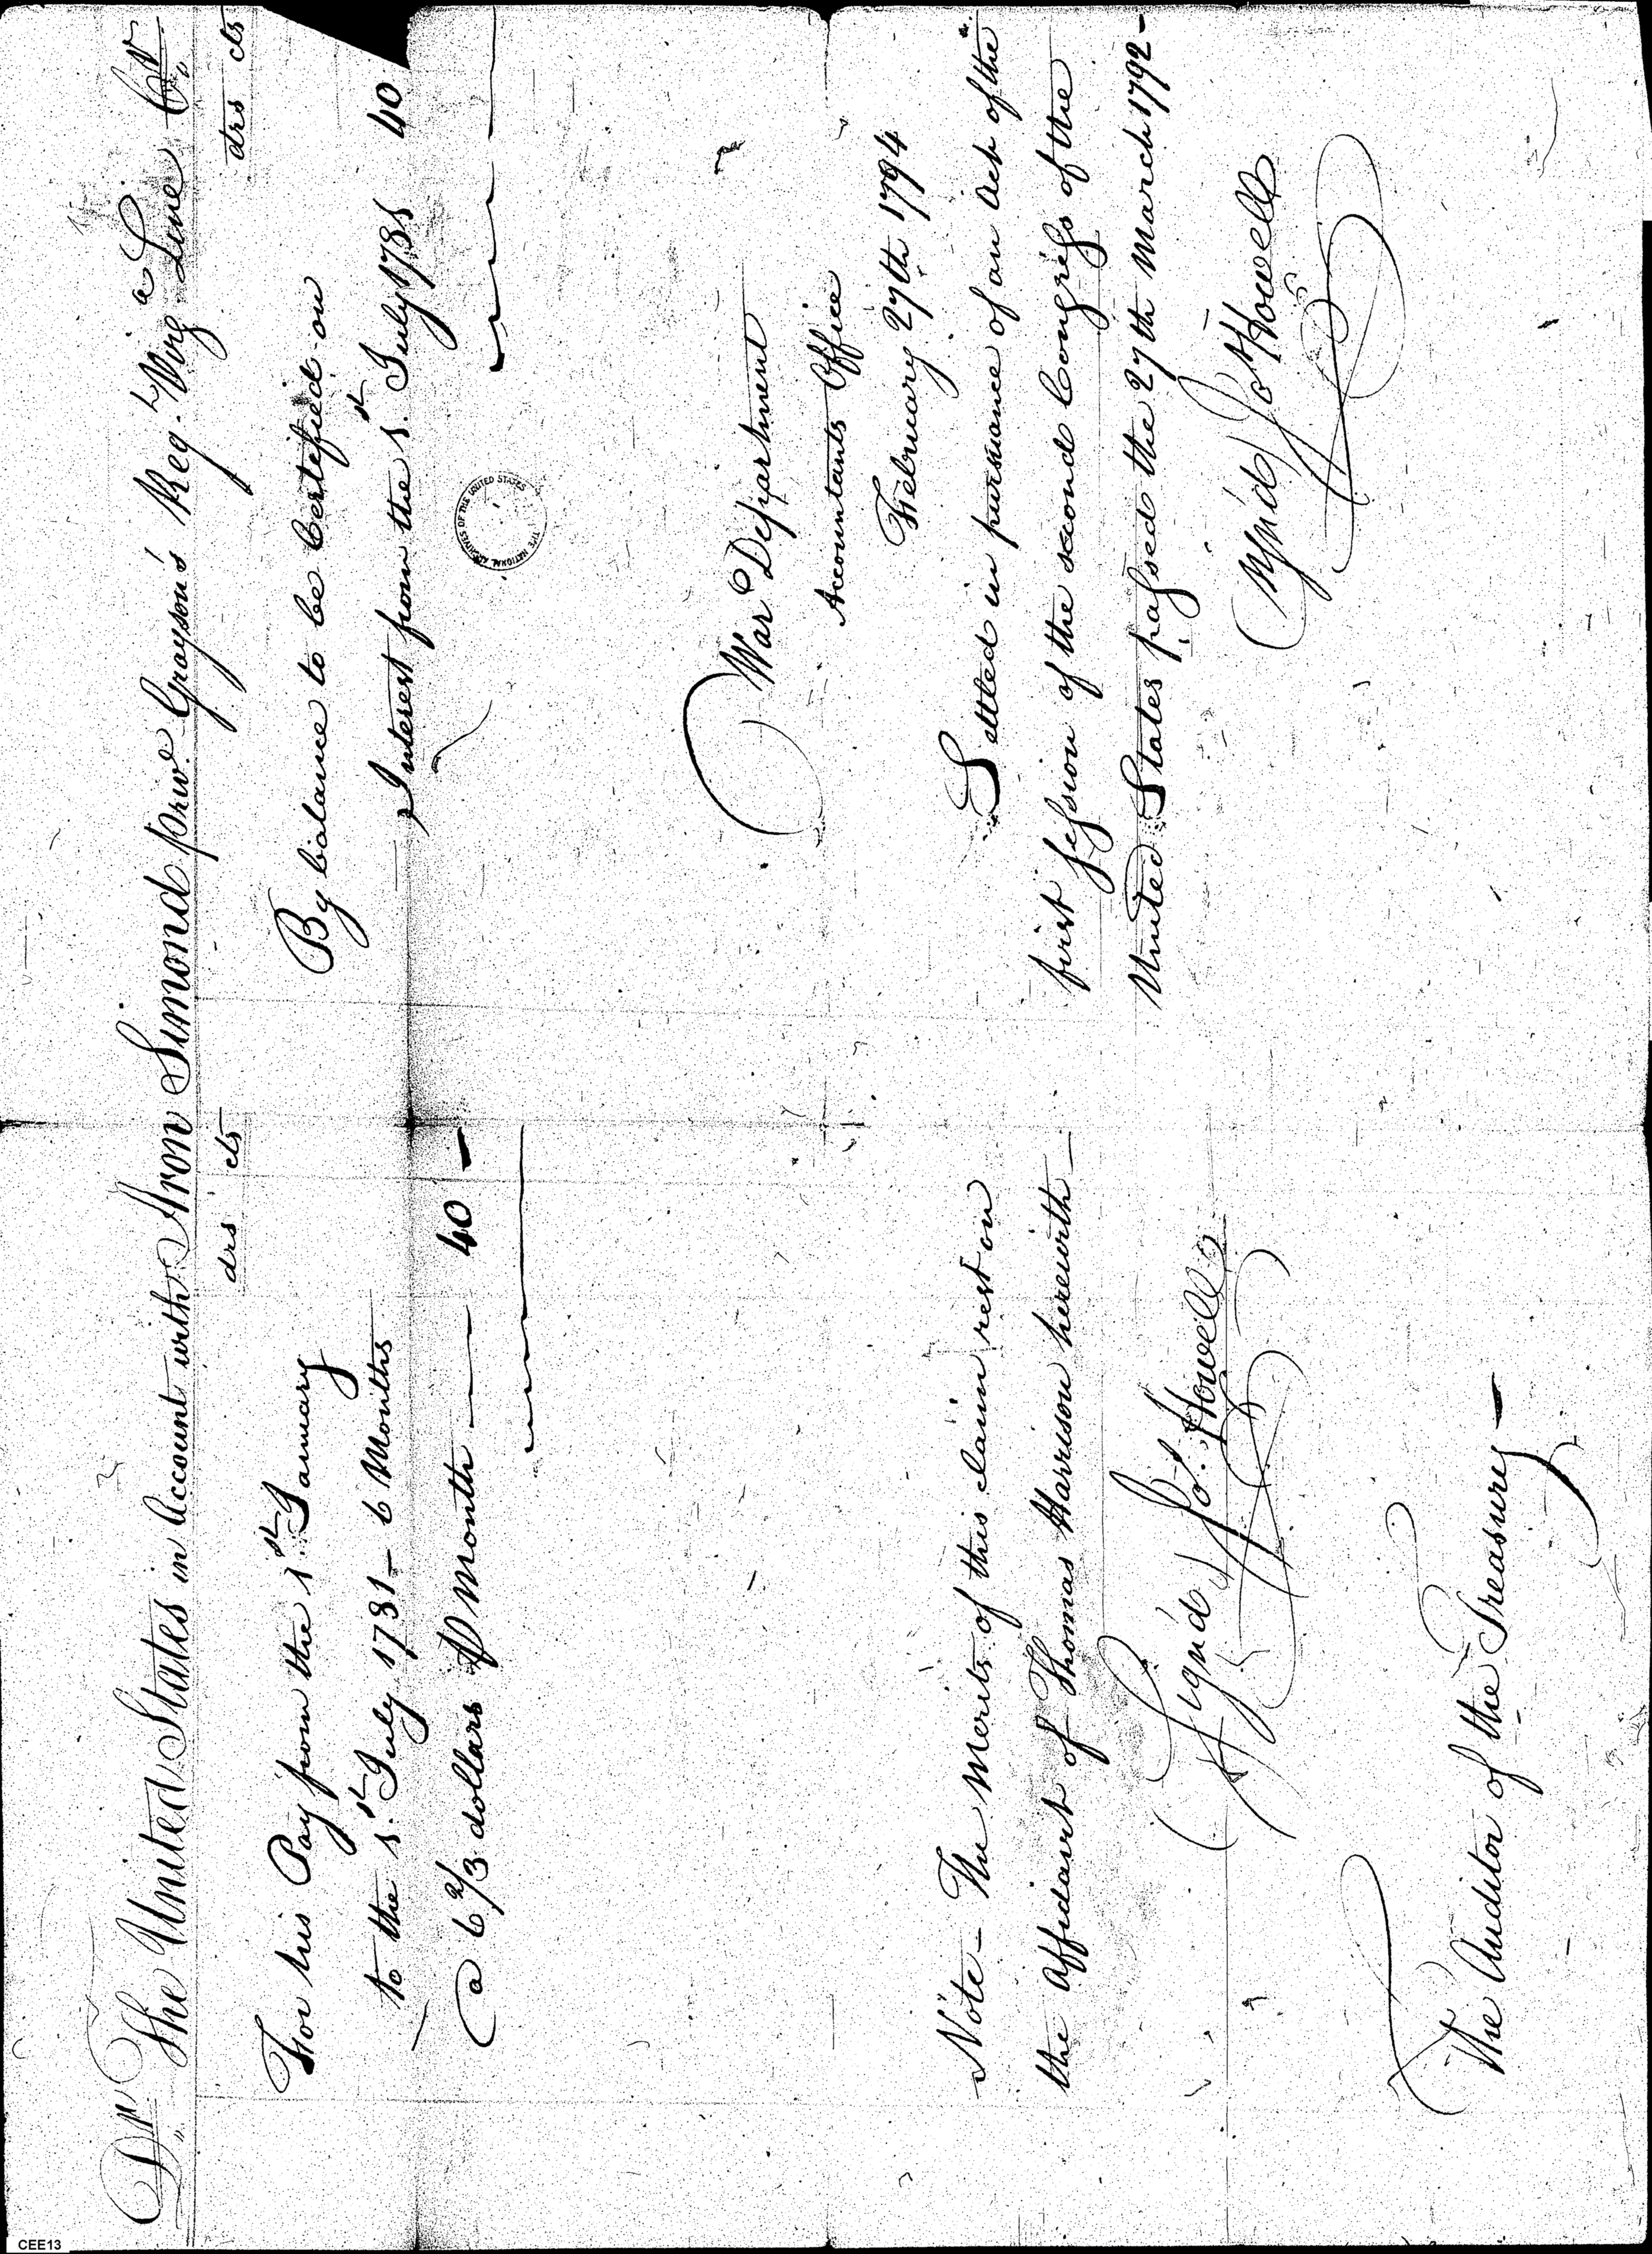 Dr The United States in Account with Aron Simond priv.e Grayson's Reg.t Virg.a Line Cr
drs cts
For his Pay from the 1st January
to the 1st July 1781 - 6 Months
a 6 2/3 dollars P Month — 40 -
drs cts
By balance to be Certified on
Interest from the 1st July 1781 40
THE NATIONAL ARCHIVES OF THE UNITED STATES
War Department
Accountants Office
February 27th 1794
Settled in pursuance of an Act of the
first session of the second Congress of the
United States passed the 27th March 1792 -
Signd Jos Howell
Note - The merits of this claim rest on
the affidavit of Thomas Harrison herewith -
Signd Jos. Howell
The Auditor of the Treasury -
CEE13